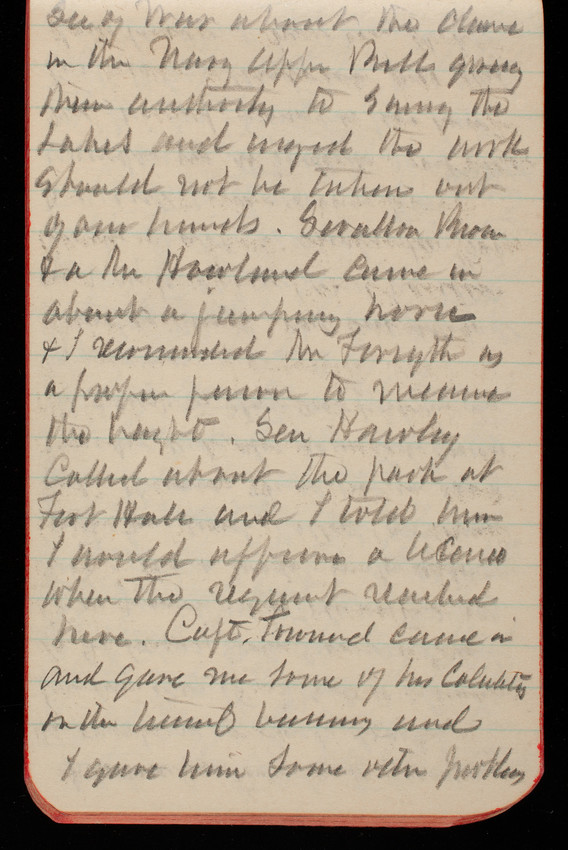 Sec of War about the clause
in the Navy Appn Bill giving
them authority to Survey the
Lakes and urged the work
should not be taken out
of our hands. Brown
& a Mr Howland came in
about a jumping horse
& I recommended Mr Forsyth as
a proper person to measure
the height. Sen Hawley
Called about the park at
Fort Hale and I told him
I would approve a license
when the request reached
here. Capt. Townsend came in
and gave me some of his
on the and
I gave him some other problems